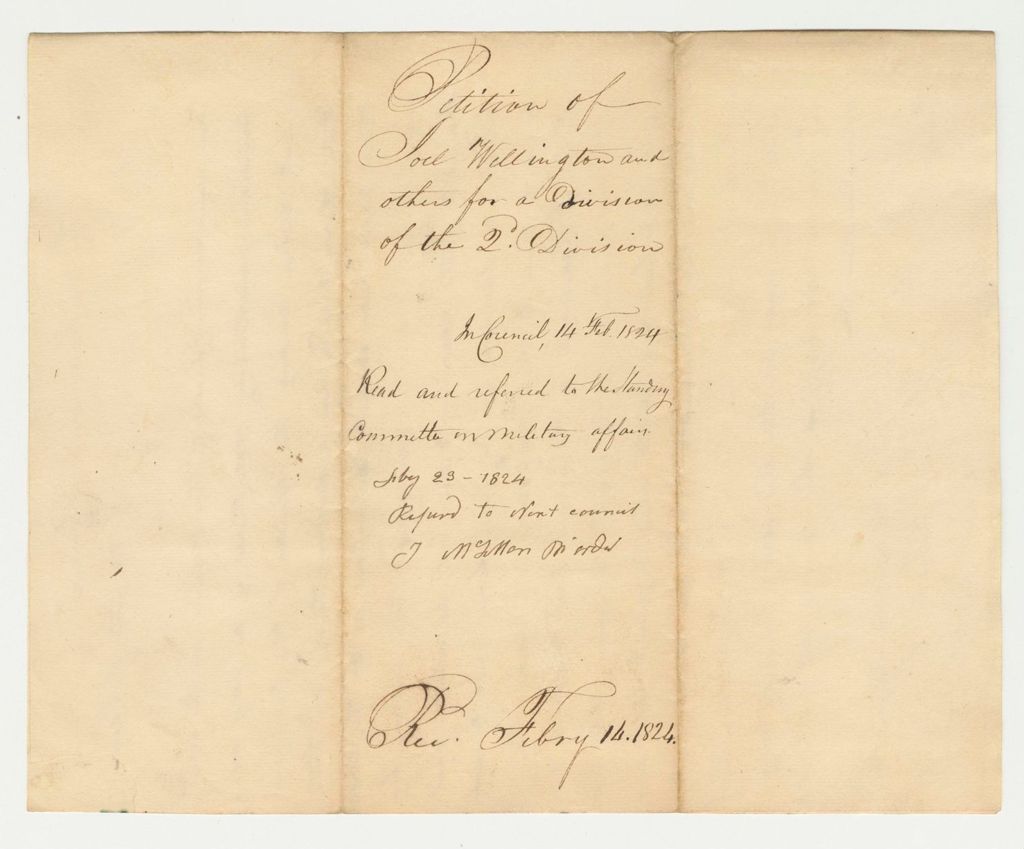 Petition of
Joel Wellington and
others for a Division
of the 2d. Division
In Council, 14 Feb. 1824
Read and referred to the Standing
Committee on Military affairs
Feby 23 - 1824
Referd to Next council
J
Rec. Febry 14. 1824.